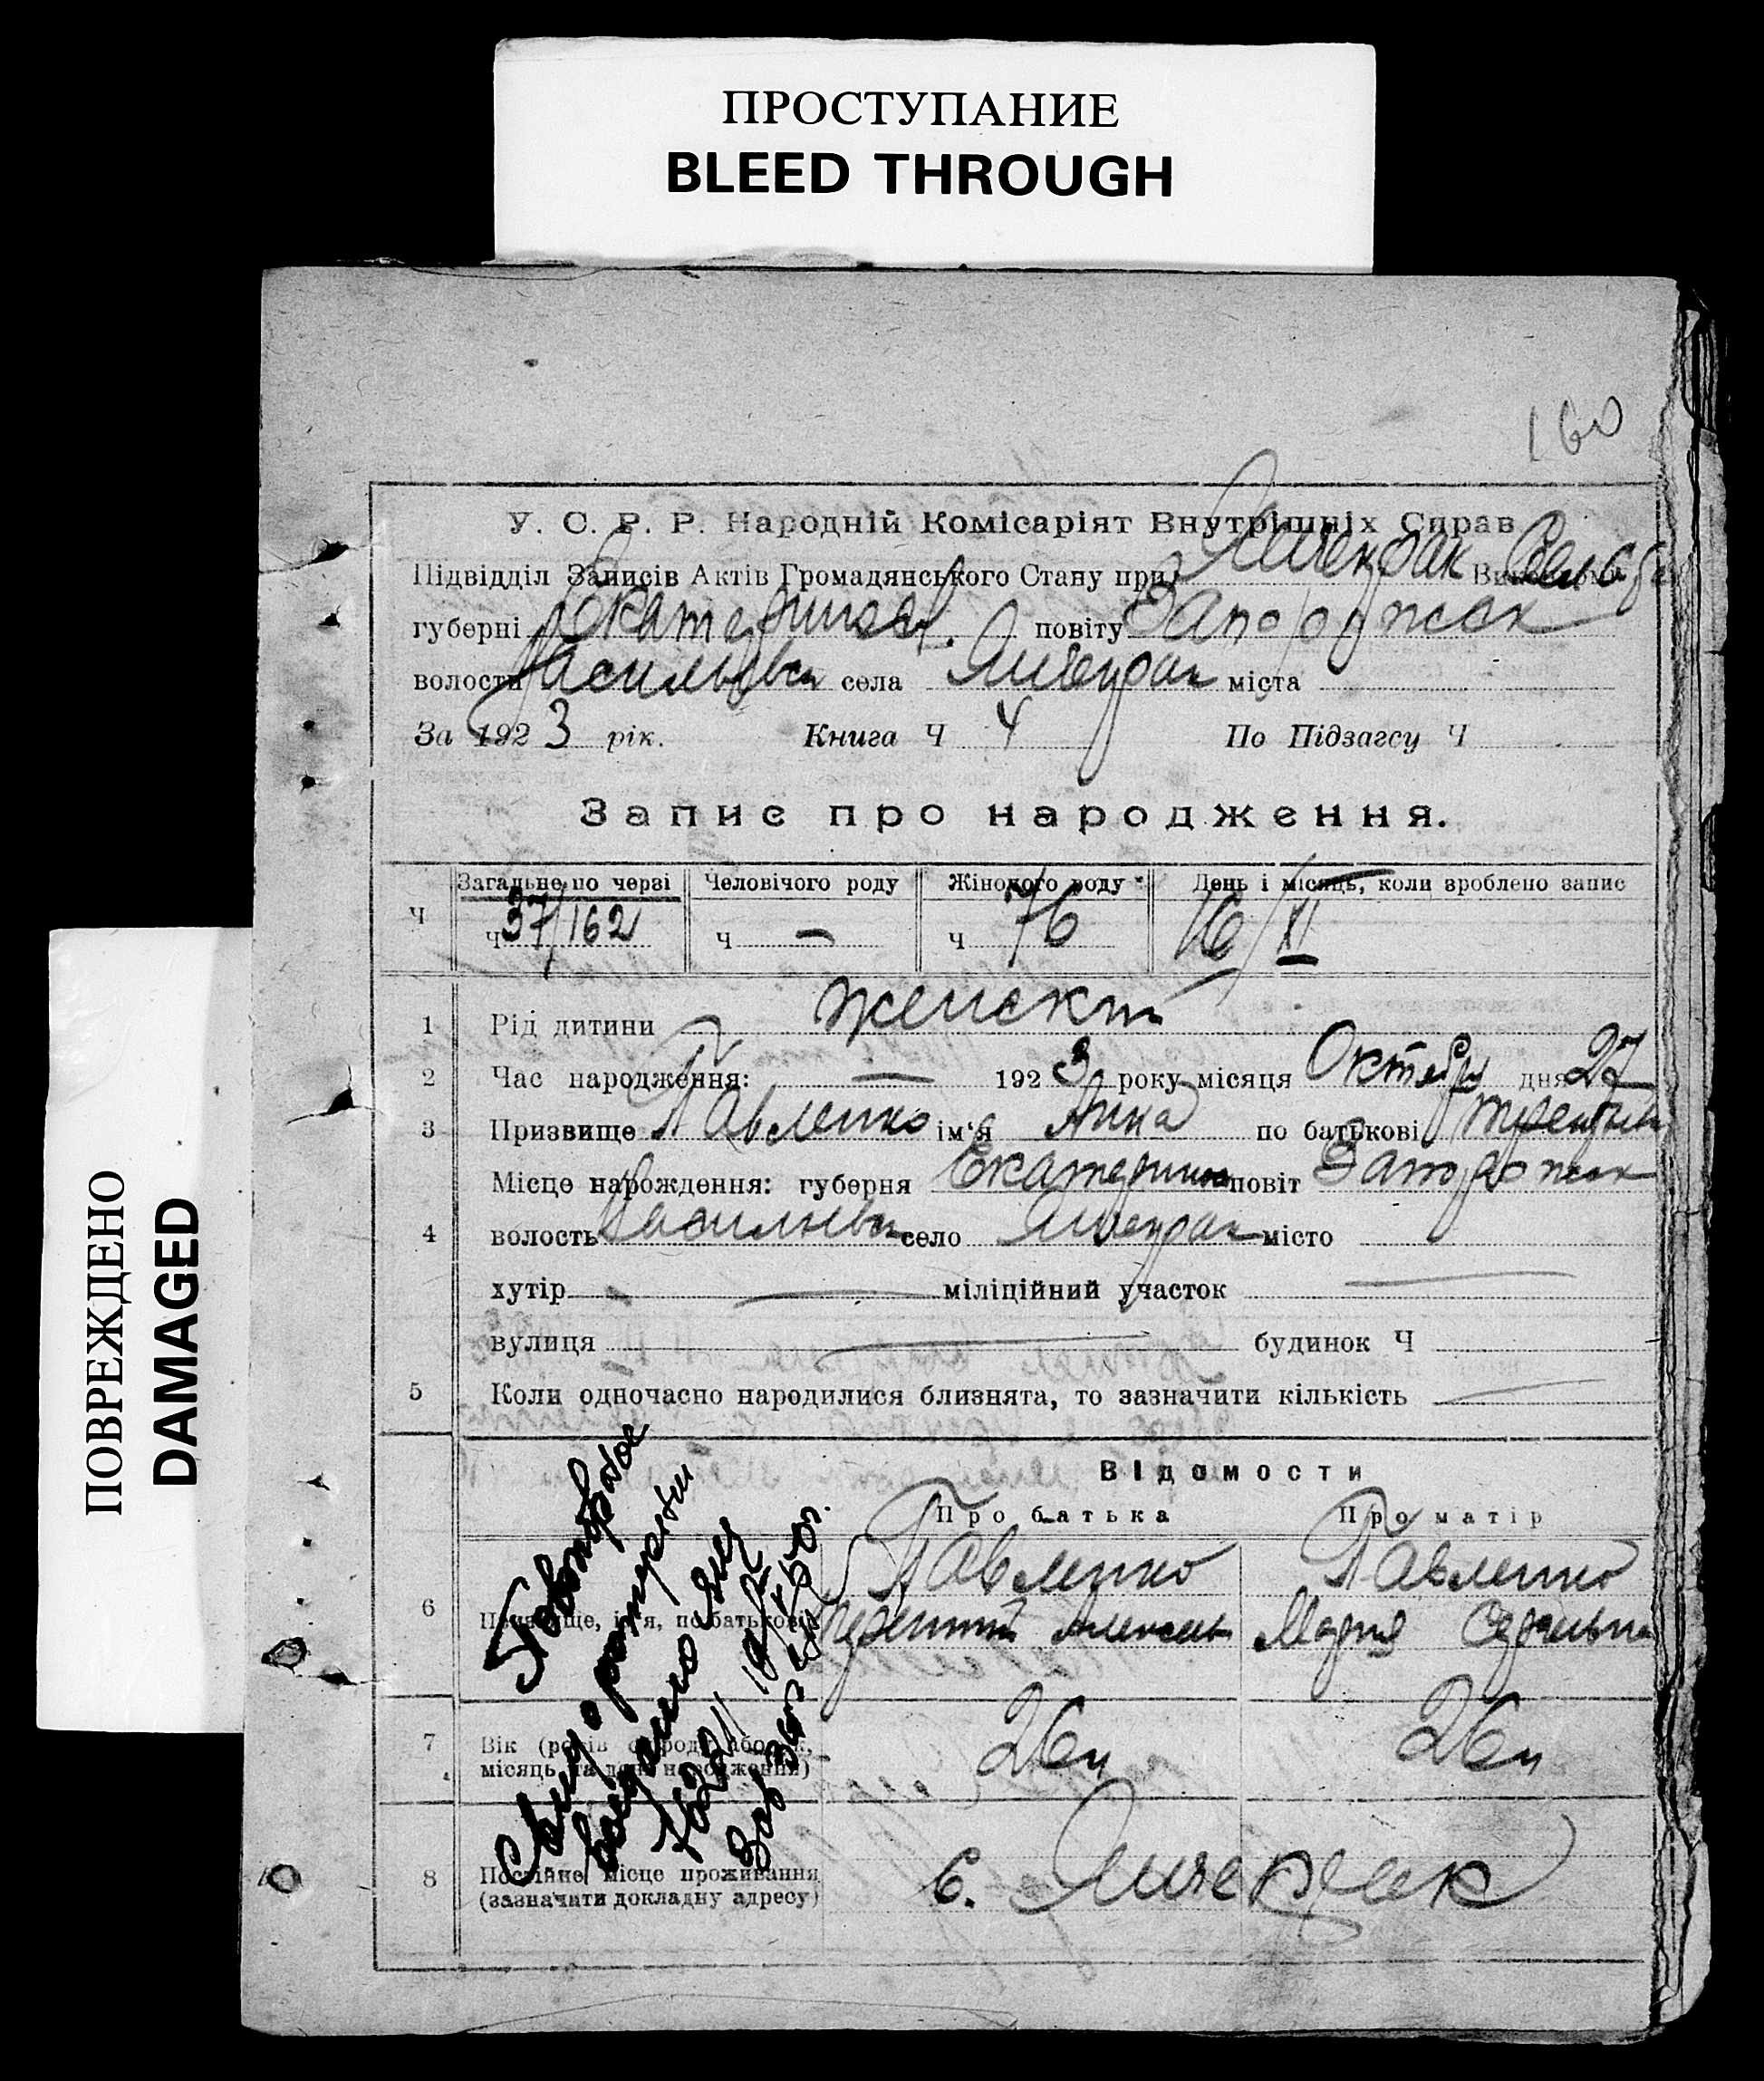 ПРОСТУПАНИЕ
BLEED THROUGH
ПОВРЕЖДЕНО
DAMAGED
160
У. С. Р. Р. Народній Комісаріят Внутрішніх Справ
Підвідділ Записів Актів Громадянського Стану при Янчекрак
губерні Екатериносл. повіту Запорожск
волости Васильевск села Янчекрак міста
За 1923 рік. Книга Ч 4 По Підзагсу Ч
Запис про народження.
Загальне по черзі Человічого роду Жіночого роду День і місяць, коли зроблено запис
Ч Ч 37/162 Ч — Ч 76 16/XI
1 Рід дитини женский
2 Час народження: — 1923 року місяця Октября дня 27
3 Призвище Павленко ім'я Анна по батькові
Місце нарождення: губерня Екатерин повіт Запорожск
4 волость Васильевск село Янчекрак місто
хутір — міліційний участок —
вулиця — будинок Ч
5 Коли одночасно народилися близнята, то зазначити кількість —
Відомости
Про батька Про матір
Павленко Павленко
6 Призвище, ім'я, по батькові Мария
7 Вік (років от роду або рік, 26 л 26 л
місяць та день народження)
8 Постійне місце проживання с. Янчекрак
(зазначити докладну адресу)
Повторное
Свид. о рождении
выдано